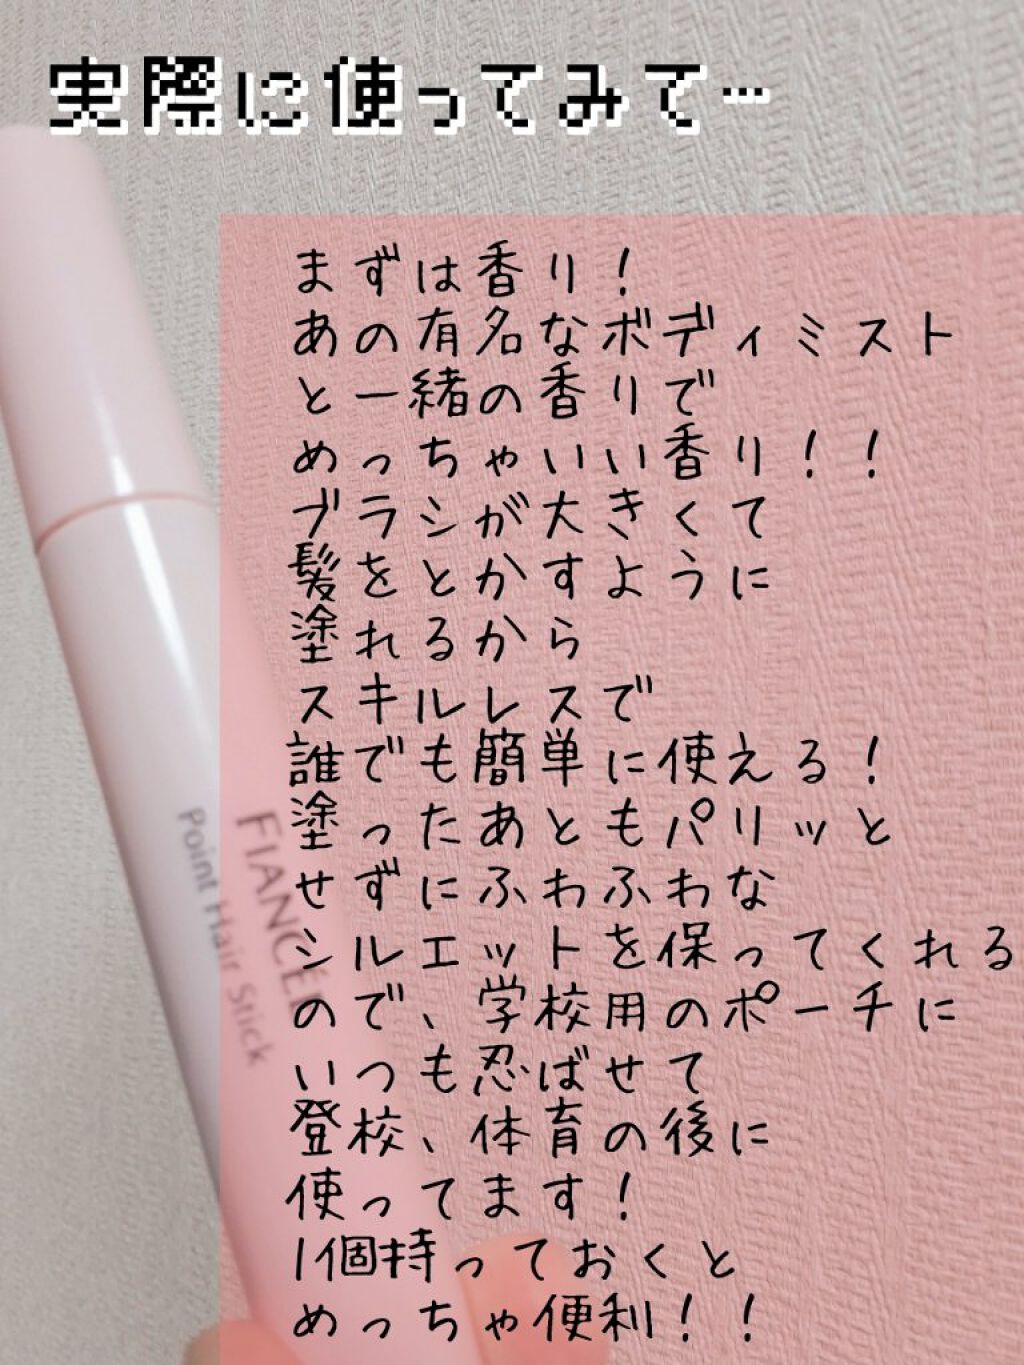 実際に使ってみて…
まずは香り！
あの有名なボディミスト
と一緒の香りで
めっちゃいい香り！！
ブラシが大きくて
髪をとかすように
塗れるから
スキルレスで
誰でも簡単に使える！
塗ったあともパリッと
せずにふわふわな
シルエットを保ってくれる
ので、学校用のポーチに
いつも忍ばせて
登校、体育の後に
使ってます！
1個持っておくと
めっちゃ便利！！
FIANCEE
Point Hair Stick